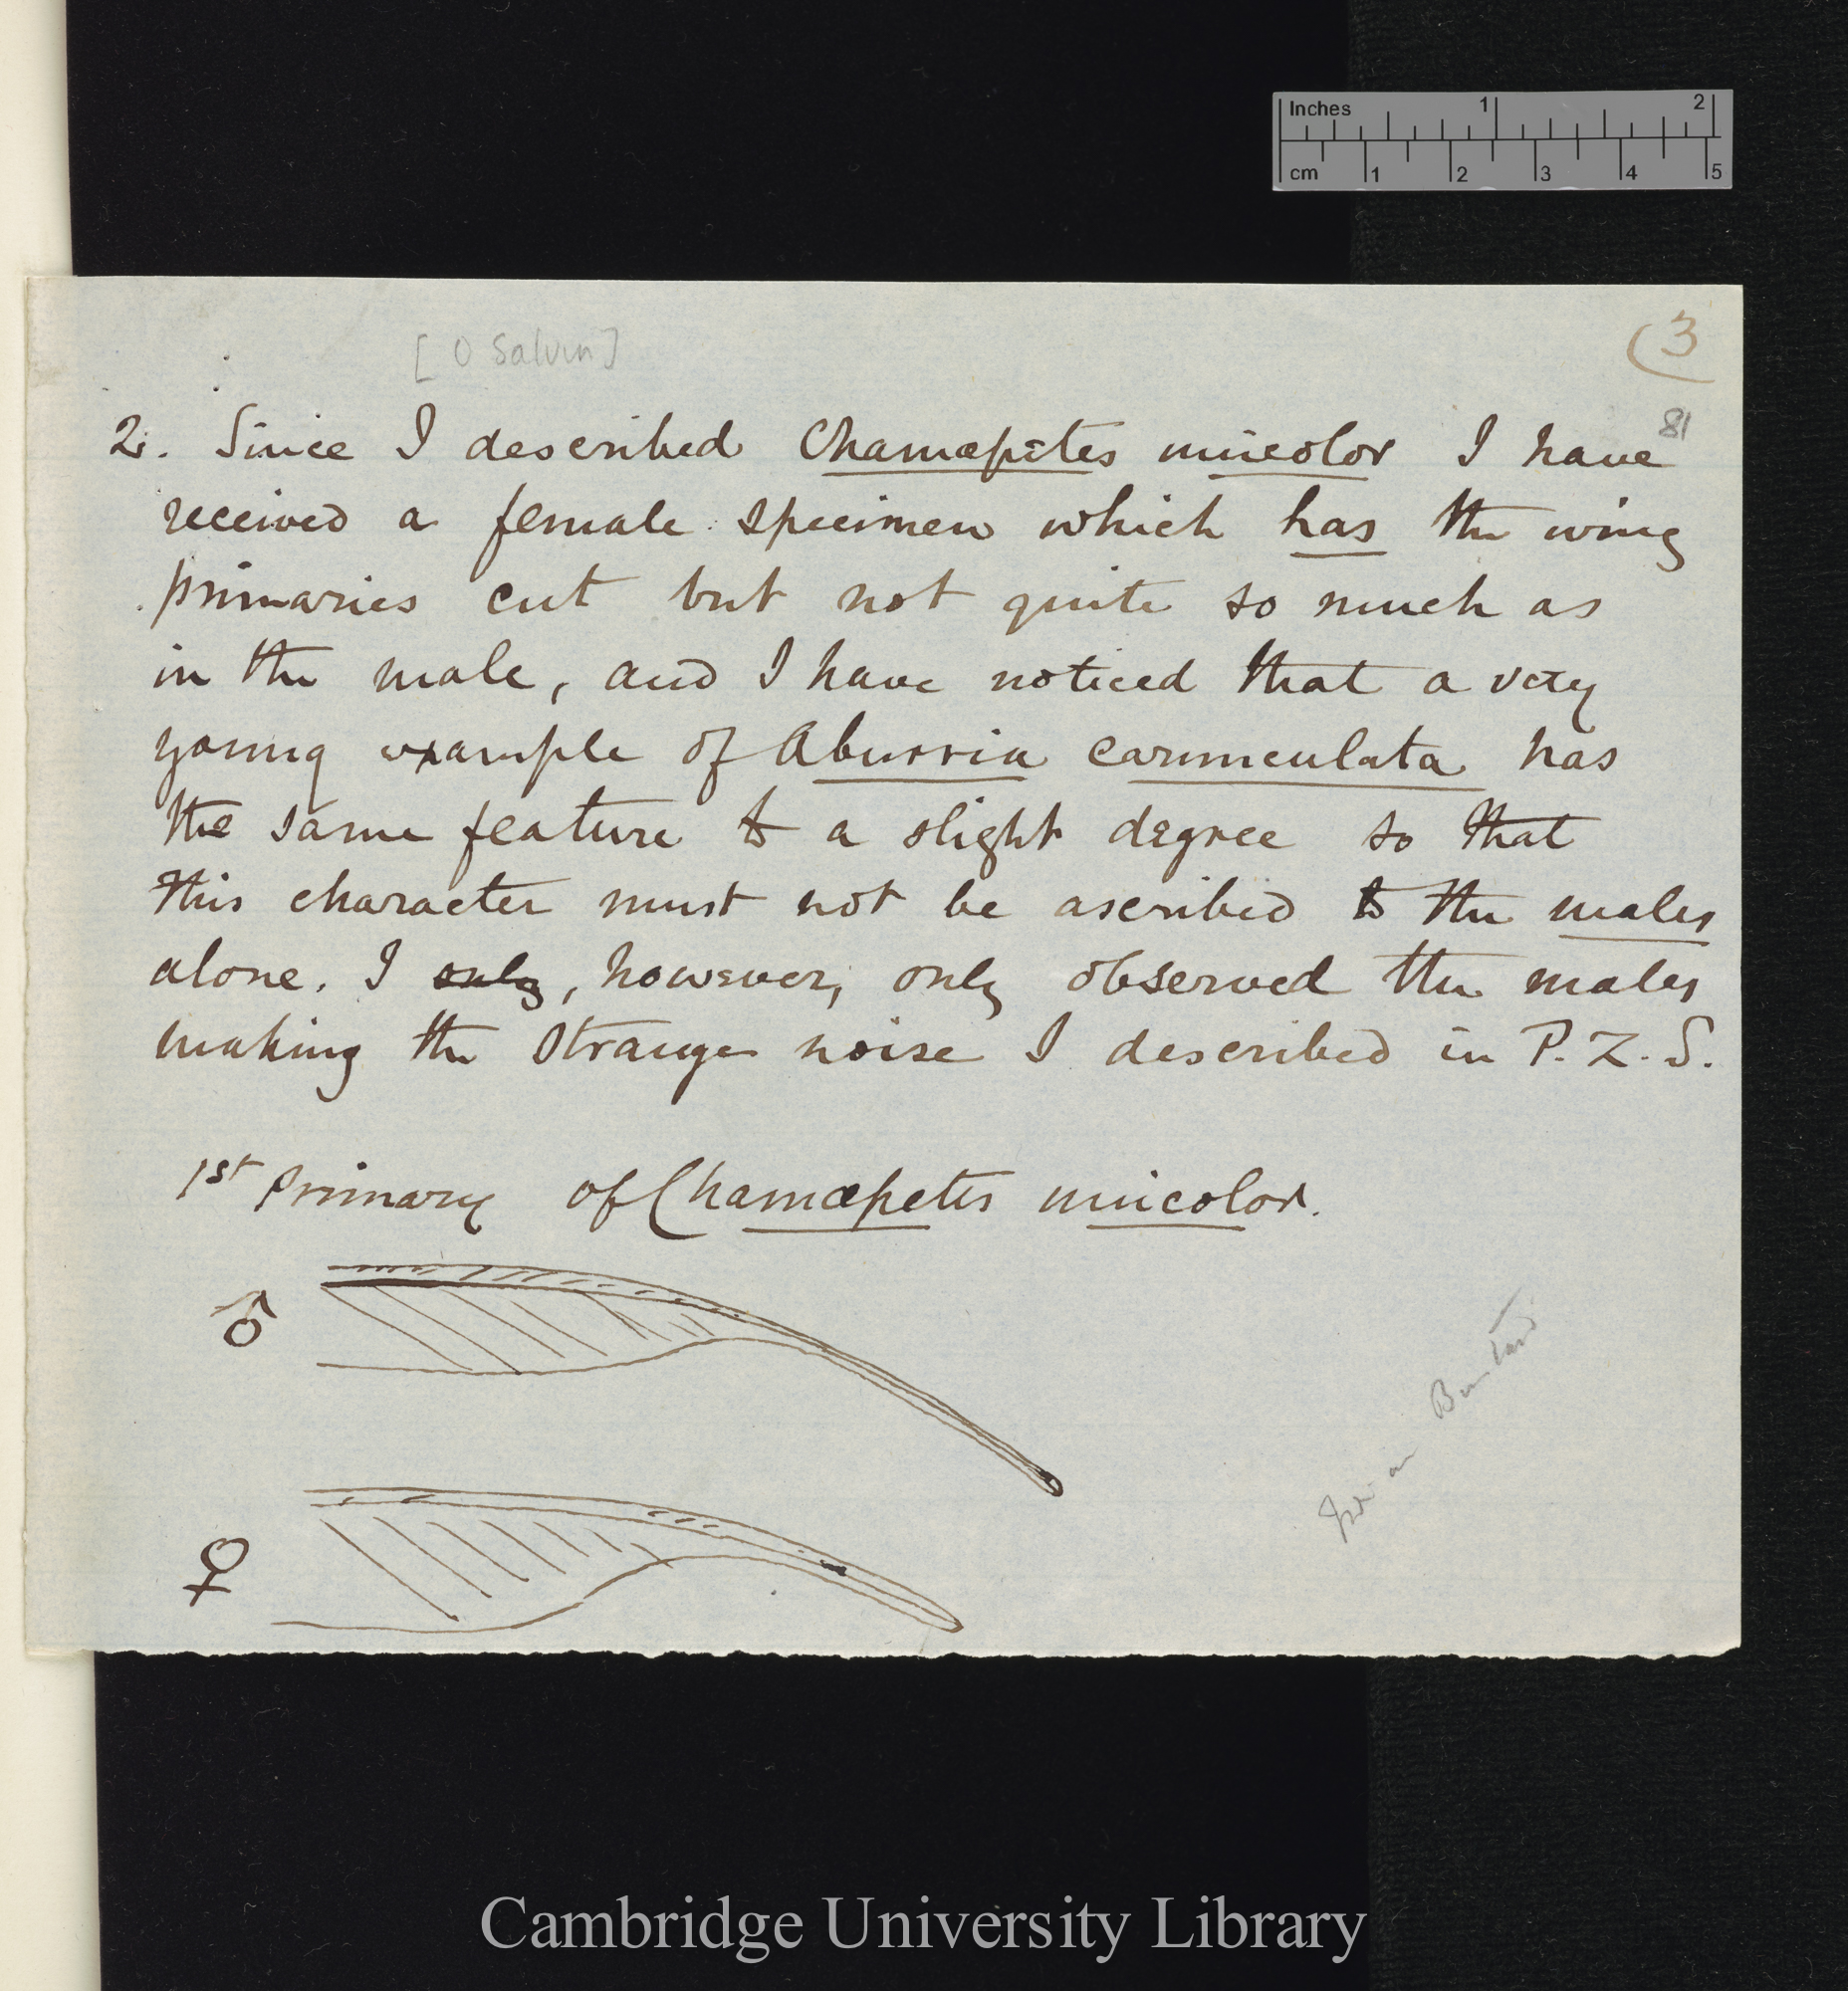 Inches 1 2
cm 1 2 3 4 5
[O Salvin]
(3
81
2. Since I described Chamæpetes unicolor I have
received a female specimen which has the wing
primaries cut but not quite so much as
in the male, and I have noticed that a very
young example of Aburria carunculata has
the same feature to a slight degree so that
this character must not be ascribed to the males
alone. I only, however, only observed the males
making the strange noise I described in P. Z. S.
1st primary of Chamæpetes unicolor.
♂
♀
Bustard
Cambridge University Library